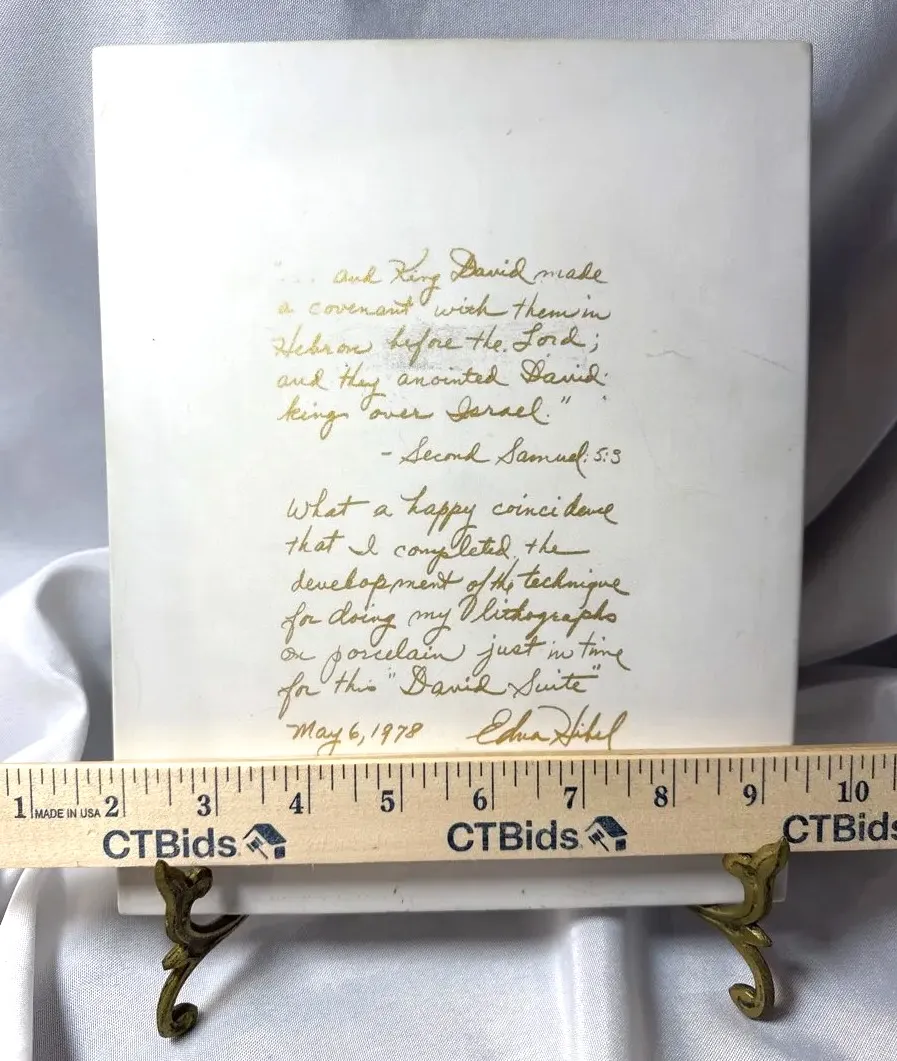 "... and King David made
a covenant with them in
Hebron before the Lord;
and they anointed David
king over Israel."
- Second Samuel: 5:3
What a happy coincidence
that I completed the
development of the technique
for doing my lithographs
on porcelain just in time
for this "David Suite"
May 6, 1978 Edna Hibel
1 MADE IN USA 2 3 4 5 6 7 8 9 10
CTBids CTBids CTBids